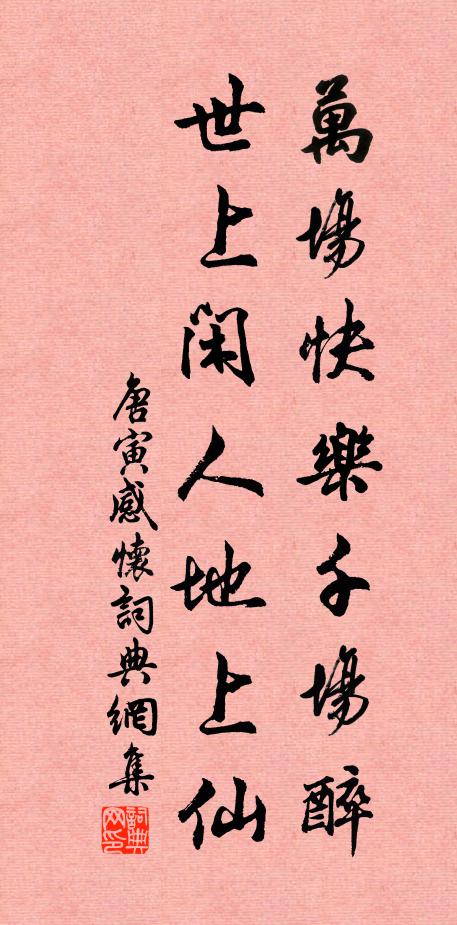 萬場快樂千場醉
世上閑人地上仙
唐寅感懷詞典網集
詞典网印